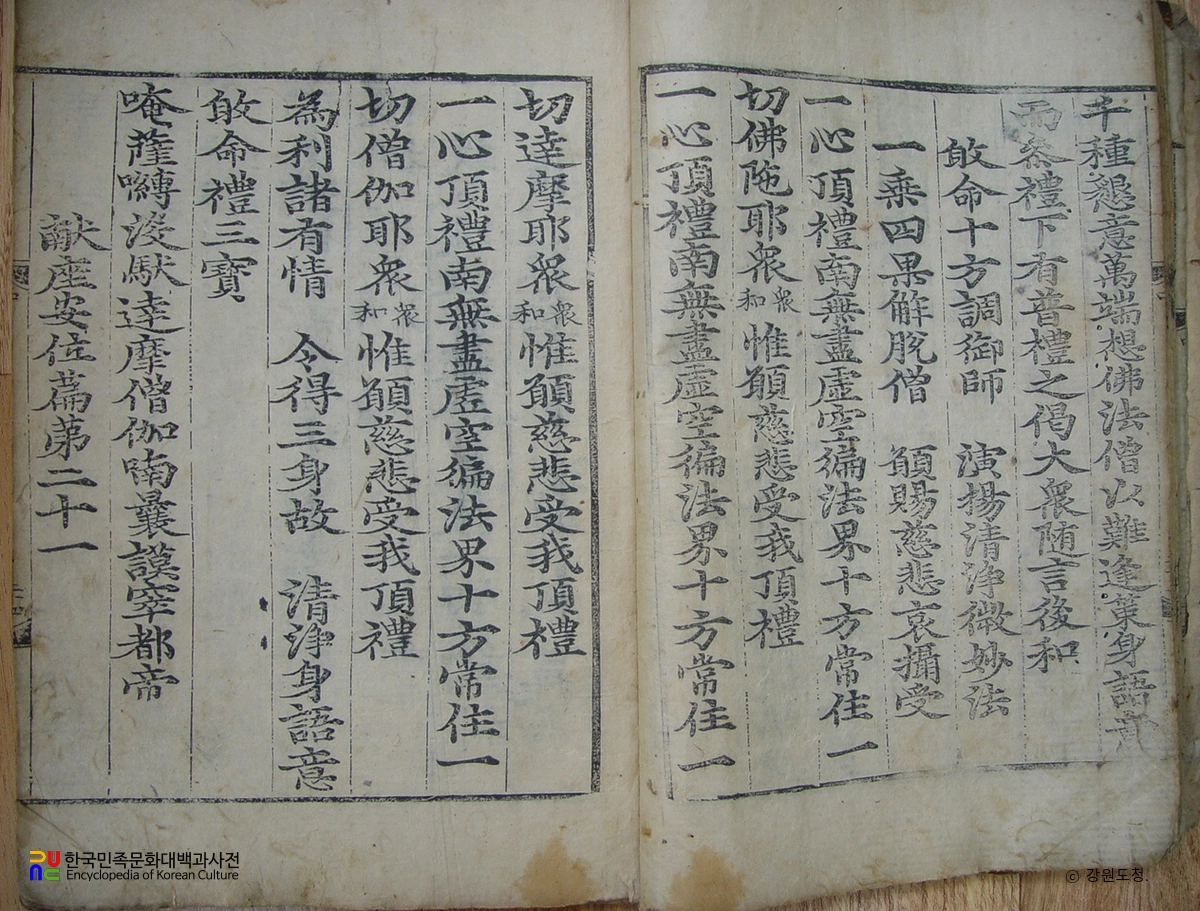 千種懇意萬端想佛法僧以難逢策身語意
而叅禮下有普禮之偈大衆随言後和
敀命十方調御師 演揚清淨微妙法
一乘四果解脫僧 願賜慈悲哀攝受
一心頂禮南無盡虛空徧法界十方常住一
切佛陁耶衆 衆和 惟願慈悲受我頂禮
一心頂禮南無盡虛空徧法界十方常住一
切達摩耶衆 衆和 惟願慈悲受我頂禮
一心頂禮南無盡虛空徧法界十方常住一
切僧伽耶衆 衆和 惟願慈悲受我頂禮
為利諸有情 令得三身故 清淨身語意
敀命禮三寶
唵薩嚩沒馱達摩僧伽喃曩謨窣都帝
献座安位篇第二十一
한국민족문화대백과사전
Encyclopedia of Korean Culture
© 강원도청.